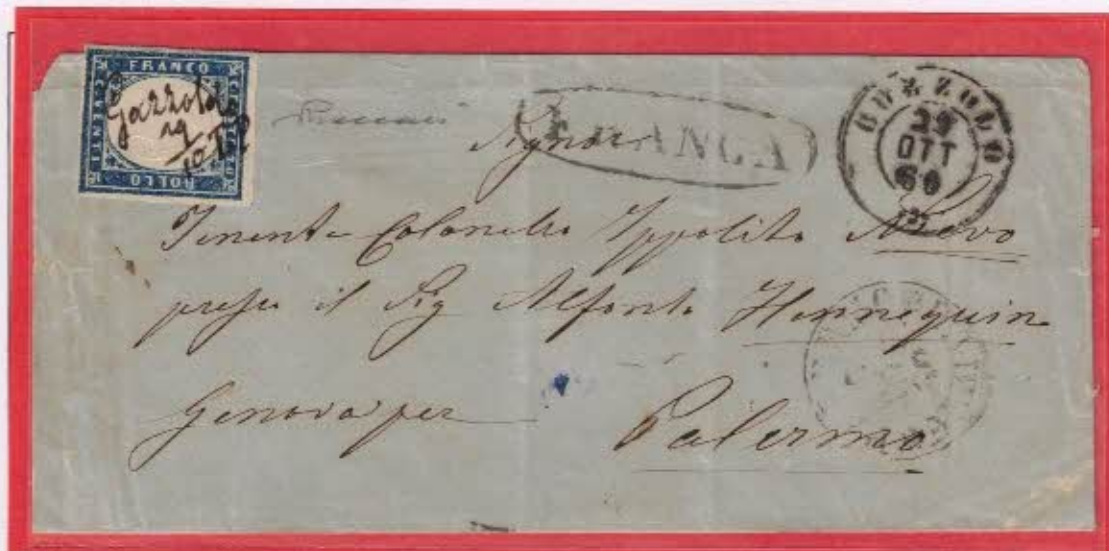 FRANCO
C. VENTI
BOLLO
Gazzoldo
29
FRANCA
BOZZOLO
29
OTT
60
Signor
Tenente Colonello Ippolito Nievo
presso il Sig Alfonso Hennequin
Genova per Palermo